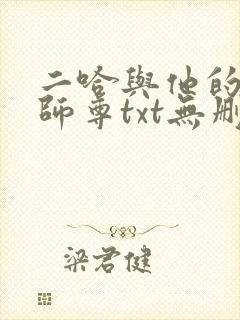 二哈與他的
師尊txt無刪
梁君健